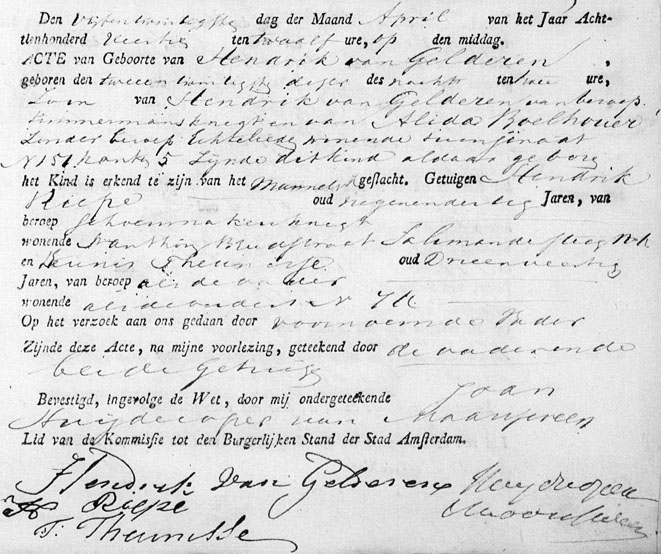 Den Vijfentwintigste dag der Maand April van het Jaar Acht-
tienhonderd Veertig ten twaalf ure, op den middag.
ACTE van Geboorte van Hendrik van Gelderen,
geboren den tweeentwintigste dezer des nachts ten twee ure,
Zoon van Hendrik van Gelderen van beroep
timmermansknegt en van Alida Boelhouer
Zonder beroep Echtelieden wonende
N 151 kant 5 Zynde dit kind aldaar geboren
het Kind is erkend te zijn van het Mannelijk geslacht. Getuigen Hendrik
Riepe oud Negenendertig Jaren, van
beroep Schoenmakersknegt
wonende
en Teunis Theunisse oud Drieenveertig
Jaren, van beroep als de vader
wonende
Op het verzoek aan ons gedaan door voornoemde Vader
Zijnde deze Acte, na mijne voorlezing, geteekend door de vader ende
beide getuige
Bevestigd, ingevolge de Wet, door mij ondergeteekende Joan
Huijdecoper van Maarsseveen
Lid van de Kommissie tot den Burgerlijken Stand der Stad Amsterdam.
Hendrik Van Gelderen Huydecoper
H Riepé Maarsseveen
T. Theunisse